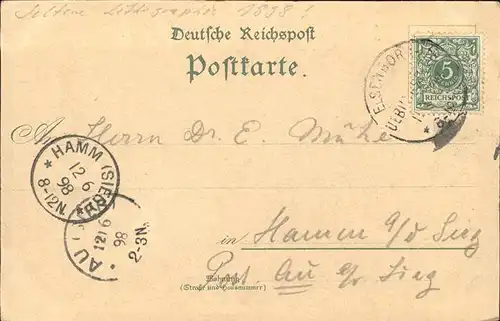 Seltene Lithographie 1898!
Deutsche Reichspost
Postkarte.
5
REICHSPOST
An Herrn Dr. E.
HAMM (SIEG)
12 6
98
8-12N.
AU
12 6
98
2-3N.
in Hamm a/d Sieg
Post Au a/ Sieg
Wohnung
(Straße und Hausnummer)